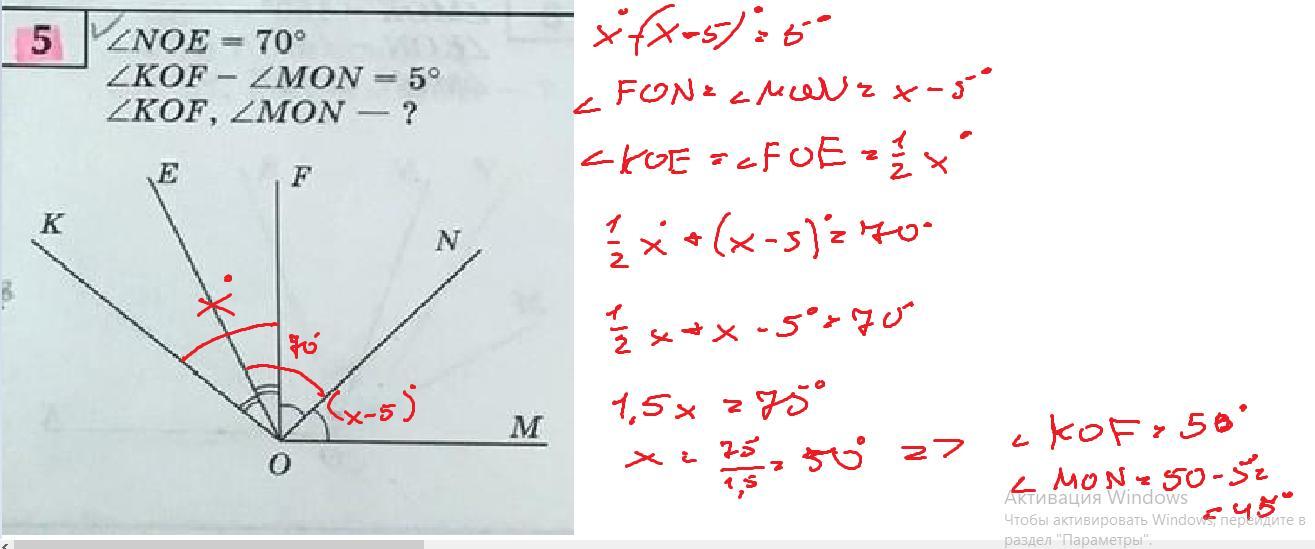 5
∠NOE = 70°
∠KOF − ∠MON = 5°
∠KOF, ∠MON — ?
K
E
F
N
M
O
x°
70°
(x-5)°
x°-(x-5)°=5°
∠FON=∠MON=x-5°
∠KOE=∠FOE=1/2 x°
1/2 x°+(x-5)°=70°
1/2 x+x-5°=70°
1,5x=75°
x=75/1,5=50° =>
∠KOF=50°
∠MON=50-5=
=45°
Активация Windows
Чтобы активировать Windows, перейдите в
раздел "Параметры".